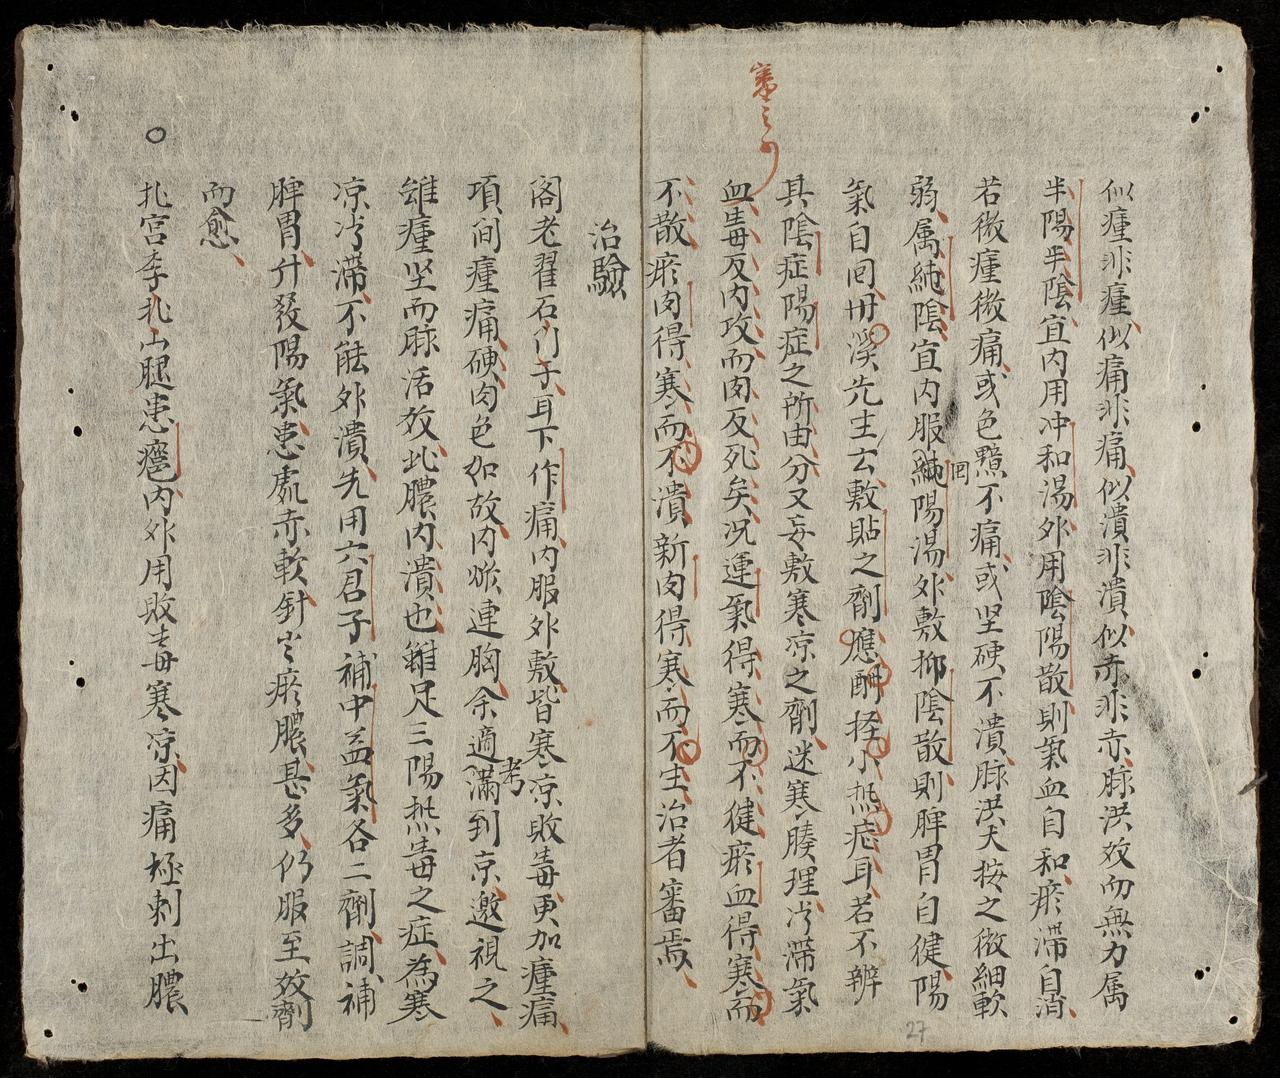 審之可
似瘇非瘇似痛非痛似潰非潰似赤非赤脉洪效而無力属
半陽半陰宜内用冲和湯外用陰陽散則氣血自和瘀滞自消
若微瘇微痛或色黯不痛或坚硬不潰脉洪大按之微細軟
弱属純陰宜内服純陽湯外敷抑陰散則脾胃自健陽
回
氣自回丹溪先生云敷貼之劑應酧怪小热症耳若不辨
具陰症陽症之所由分又妄敷寒凉之劑迷寒腠理冷滞氣
血毒反内攻而肉反死矣况運氣得寒而不健瘀血得寒而
不散瘀肉得寒而不潰新肉得寒而不生治者審焉
治驗
阁老翟石门子耳下作痛内服外敷皆寒凉敗毒更加瘇痛
項间瘇痛硬肉色如故内㷌連胸余適滿到京邀視之
考
雖瘇坚而脉活效此膿内潰也雖足三陽热毒之症為寒
凉冷滞不能外潰先用六君子補中益氣各二劑調補
脾胃升發陽氣患處亦軟針岀瘀膿甚多仍服至效劑
而愈
○
扎宫李扎山腿患癰内外用敗毒寒凉因痛極刺出膿
27